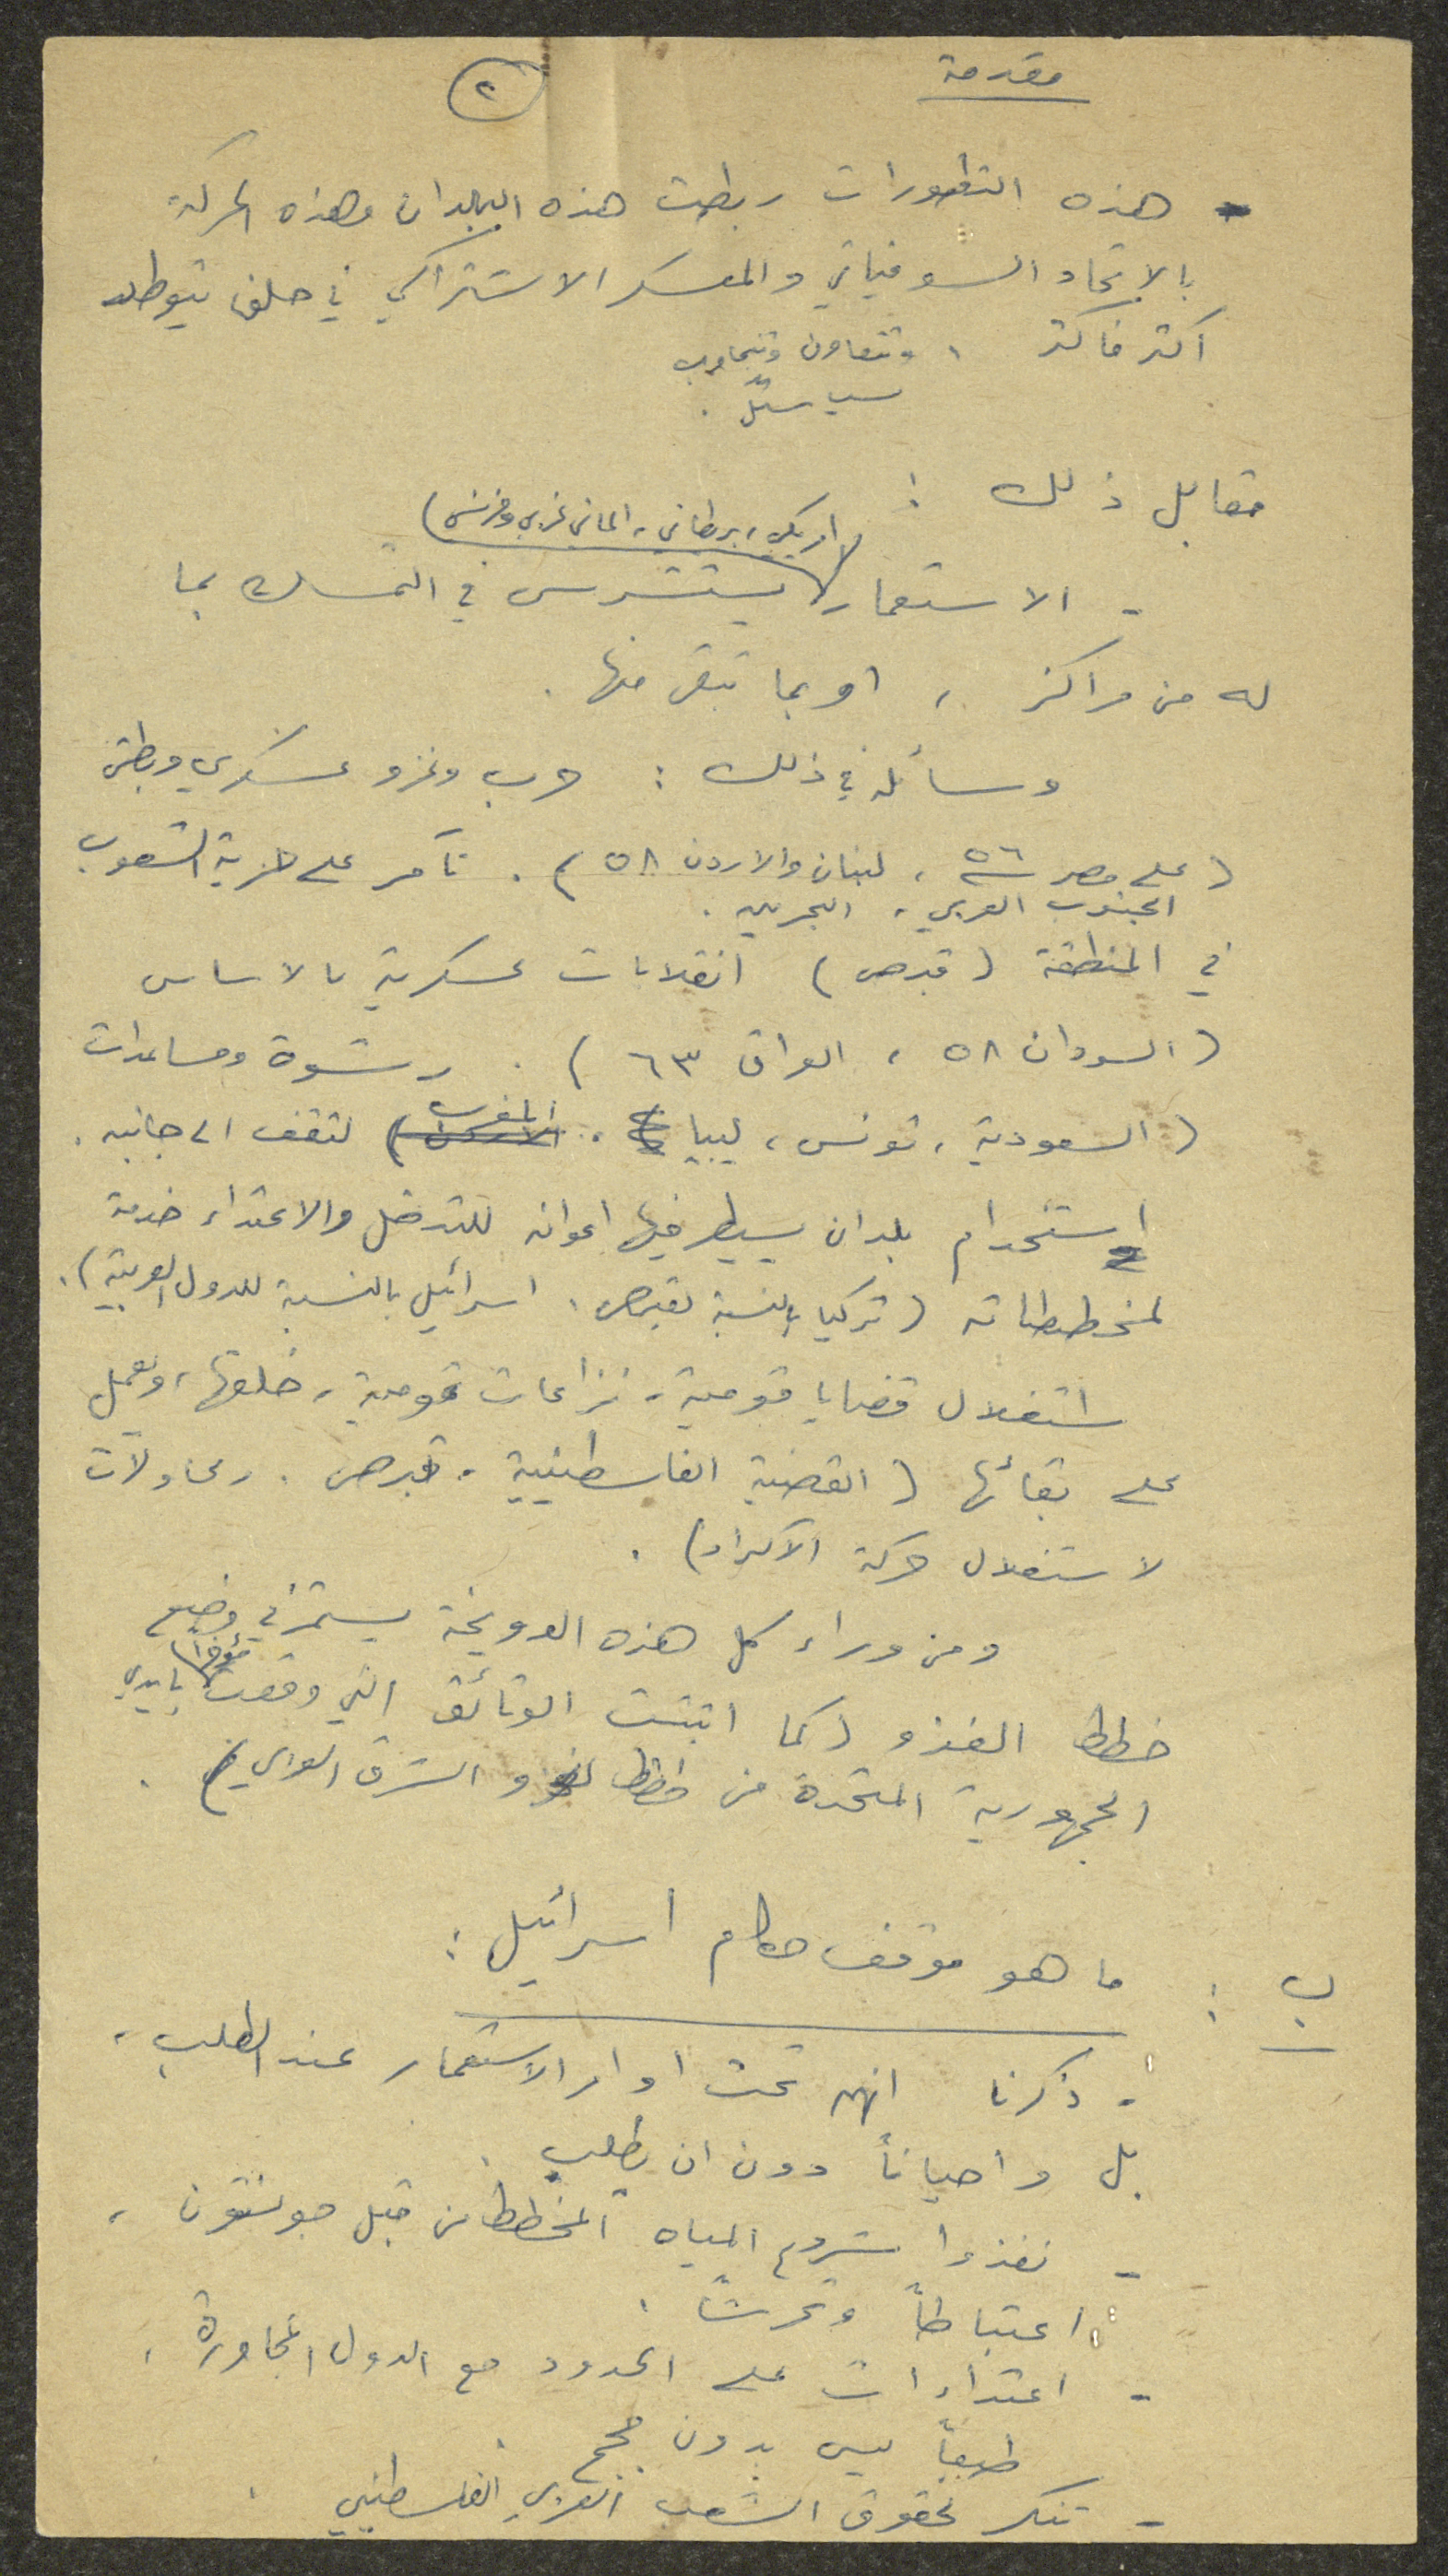 مقدمة
٢
هذه التطورات ربطت هذه البلدان وهذه الحركة
بالاتحاد السوفياتي والمعسكر الاشتراكي في حلف يتوطد
اكثر فاكثر ، وتتعاون وتتجاوب
مقابل ذلك :
(امريكي، بريطاني، الماني غربي وفرنسي)
- الاستعمار يستشرس في التمسك بما
له من مراكز ، او بما تبقى منها .
وسائله في ذلك : حرب وغزو عسكري وبطش
(على مصر ٥٦ ، لبنان والاردن ٥٨) . تآمر على حرية الشعوب
الجنوب العربي ، البحرين .
في المنطقة (قبرص) انقلابات عسكرية بالاساس
(السودان ٥٨ ، العراق ٦٣) . رشوة ومساعدات
(السعودية ، تونس ، ليبيا ، المغرب) لتقف الى جانبه .
استخدام بلدان يسيطر فيها اعوانه للتدخل والاعتداء خدمة
لمخططاته (تركيا بالنسبة لقبرص ، اسرائيل بالنسبة للدول العربية) .
استغلال قضايا قومية ، نزاعات قومية ، خلقها ، ويعمل
على بقائها (القضية الفلسطينية ، قبرص . ومحاولات
لاستغلال حركة الاكراد) .
ومن وراء كل هذه يستمر في وضع
خطط الغزو (كما اثبتت الوثائق التي وقعت مؤخراً بايدي
الجمهورية المتحدة من خطط لغزو الشرق العربي) .
ب : ما هو موقف حكام اسرائيل :
- ذكرنا انهم تحت اوامر الاستعمار عند الطلب ،
بل واحياناً دون ان يطلب .
- نفذوا مشروع المياه المخطط من قبل جونستون ،
اعتباطاً وتحرشاً .
- اعتداءات على الحدود مع الدول المجاورة ،
طبعاً ليس بدون حجج .
- تنكر لحقوق الشعب العربي الفلسطيني .